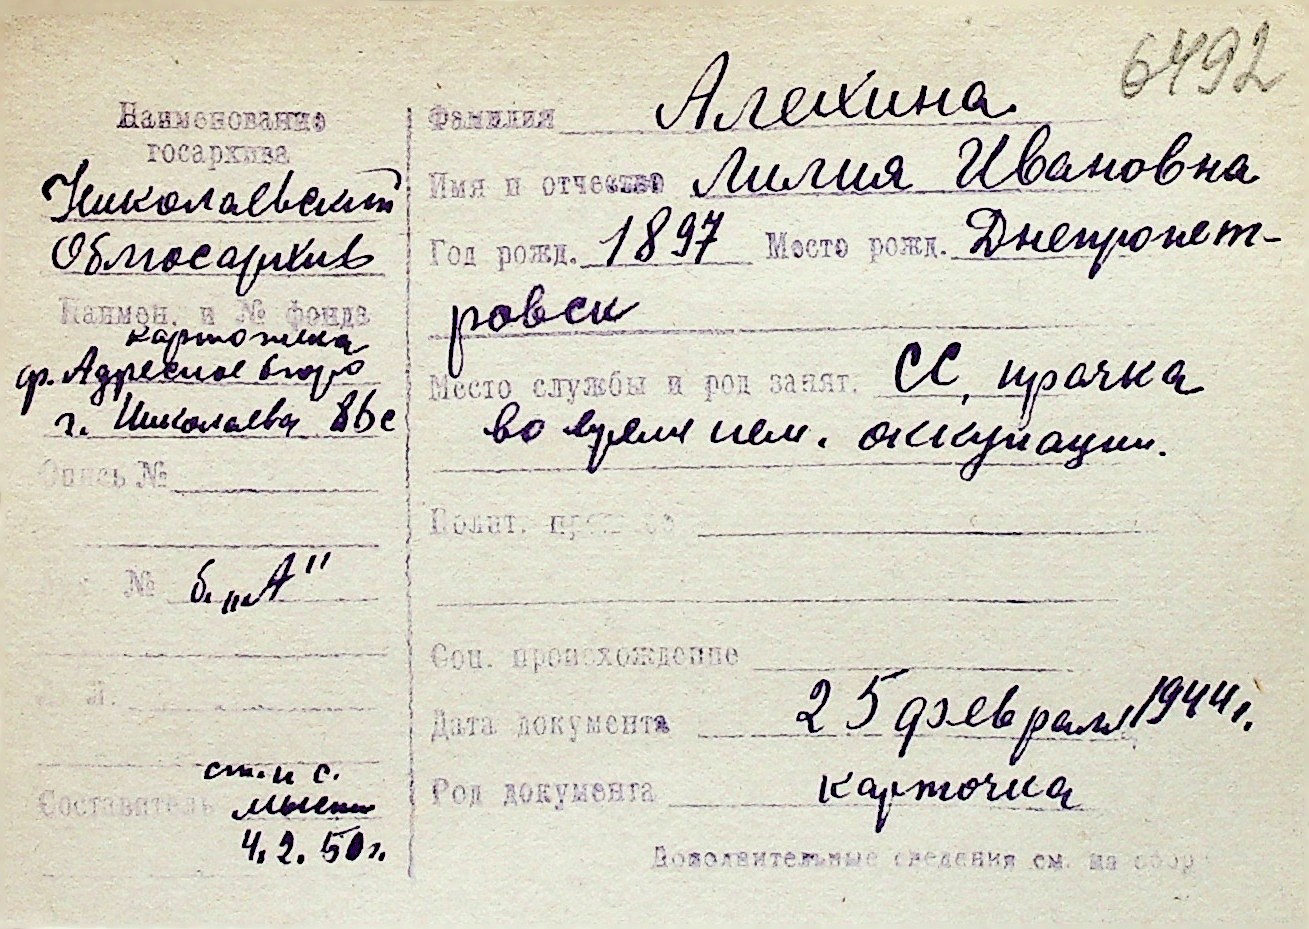 6492
Наименование
госархива
Николаевский
Облгосархив
Наимен. и № фонда
картотека
ф. Адресное бюро
г. Николаева
Опись №
№ б. „А"
л.
ст. и с.
Составитель
4.2.50г.
Фамилия Алехина
Имя и отчество Лилия Ивановна
Год рожд. 1897 Место рожд. Днепропет-
ровск
Место службы и род занят. СС, прачка
во время нем. оккупации.
Полит.
Соц. происхождение
Дата документа 25 февраля 1944г.
Род документа карточка
Дополнительные сведения см. на обор